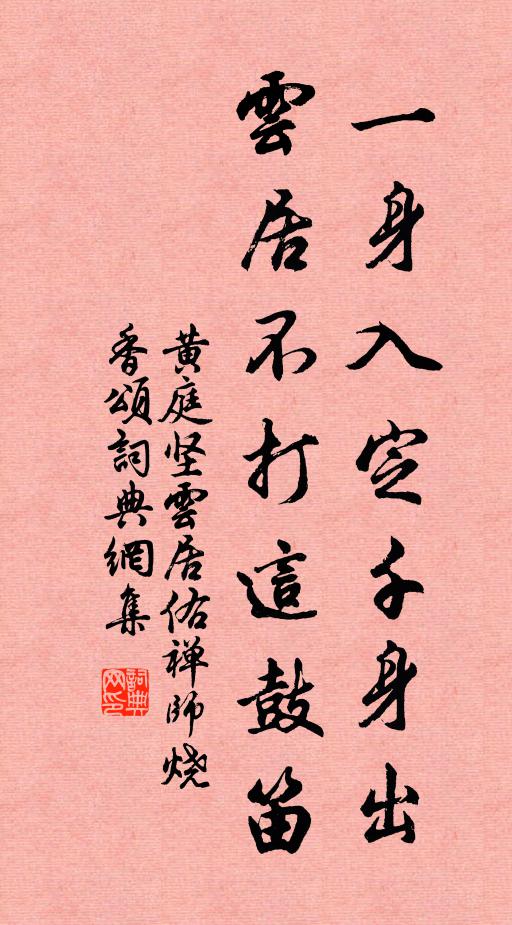 一身入定千身出
雲居不打這鼓笛
黄庭坚雲居佑禅師烧
香頌詞典網集
詞典
网印